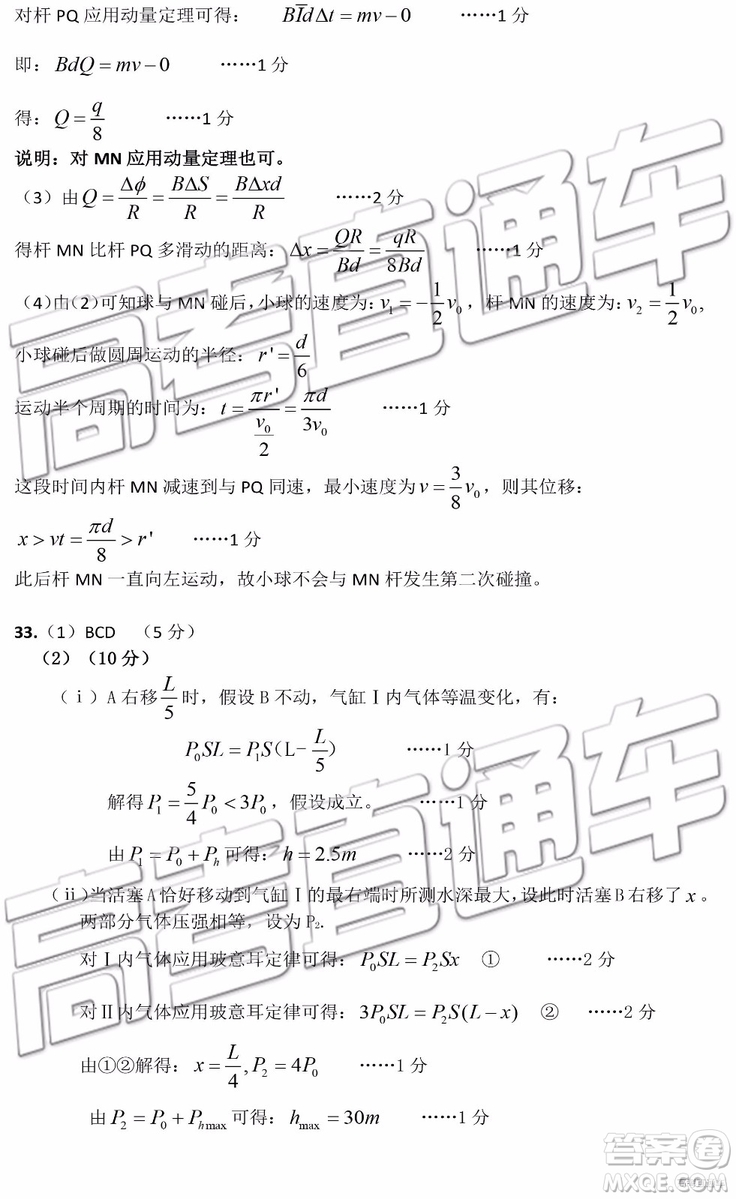 对杆 PQ 应用动量定理可得： $B\overline{I}d\Delta t = mv-0$ ……1 分
即：$BdQ = mv-0$ ……1 分
得：$Q=\frac{q}{8}$ ……1 分
说明：对 MN 应用动量定理也可。
（3）由 $Q=\frac{\Delta\phi}{R}=\frac{B\Delta S}{R}=\frac{B\Delta xd}{R}$ ……2 分
得杆 MN 比杆 PQ 多滑动的距离：$\Delta x=\frac{QR}{Bd}=\frac{qR}{8Bd}$ ……1 分
（4）由（2）可知球与 MN 碰后，小球的速度为：$v_1=-\frac{1}{2}v_0$，杆 MN 的速度为：$v_2=\frac{1}{2}v_0$,
小球碰后做圆周运动的半径：$r'=\frac{d}{6}$
运动半个周期的时间为：$t=\frac{\pi r'}{\frac{v_0}{2}}=\frac{\pi d}{3v_0}$ ……1 分
这段时间内杆 MN 减速到与 PQ 同速，最小速度为 $v=\frac{3}{8}v_0$，则其位移：
$x>vt=\frac{\pi d}{8}>r'$ ……1 分
此后杆 MN 一直向左运动，故小球不会与 MN 杆发生第二次碰撞。
33.（1）BCD （5 分）
（2）（10 分）
（ⅰ）A 右移 $\frac{L}{5}$ 时，假设 B 不动，气缸Ⅰ内气体等温变化，有：
$P_0SL=P_1S(L-\frac{L}{5})$ ……1 分
解得 $P_1=\frac{5}{4}P_0<3P_0$，假设成立。 ……1 分
由 $P_1=P_0+P_h$ 可得：$h=2.5m$ ……1 分
（ⅱ）当活塞 A 恰好移动到气缸Ⅰ的最右端时所测水深最大，设此时活塞 B 右移了 $x$ 。
两部分气体压强相等，设为 P₂.
对Ⅰ内气体应用玻意耳定律可得：$P_0SL=P_2Sx$ ① ……2 分
对Ⅱ内气体应用玻意耳定律可得：$3P_0SL=P_2S(L-x)$ ② ……2 分
由①②解得：$x=\frac{L}{4},P_2=4P_0$ ……1 分
由 $P_2=P_0+P_{h\max}$ 可得：$h_{\max}=30m$ ……1 分
高考直通车
高考直通车
答案圈
MXQE.COM